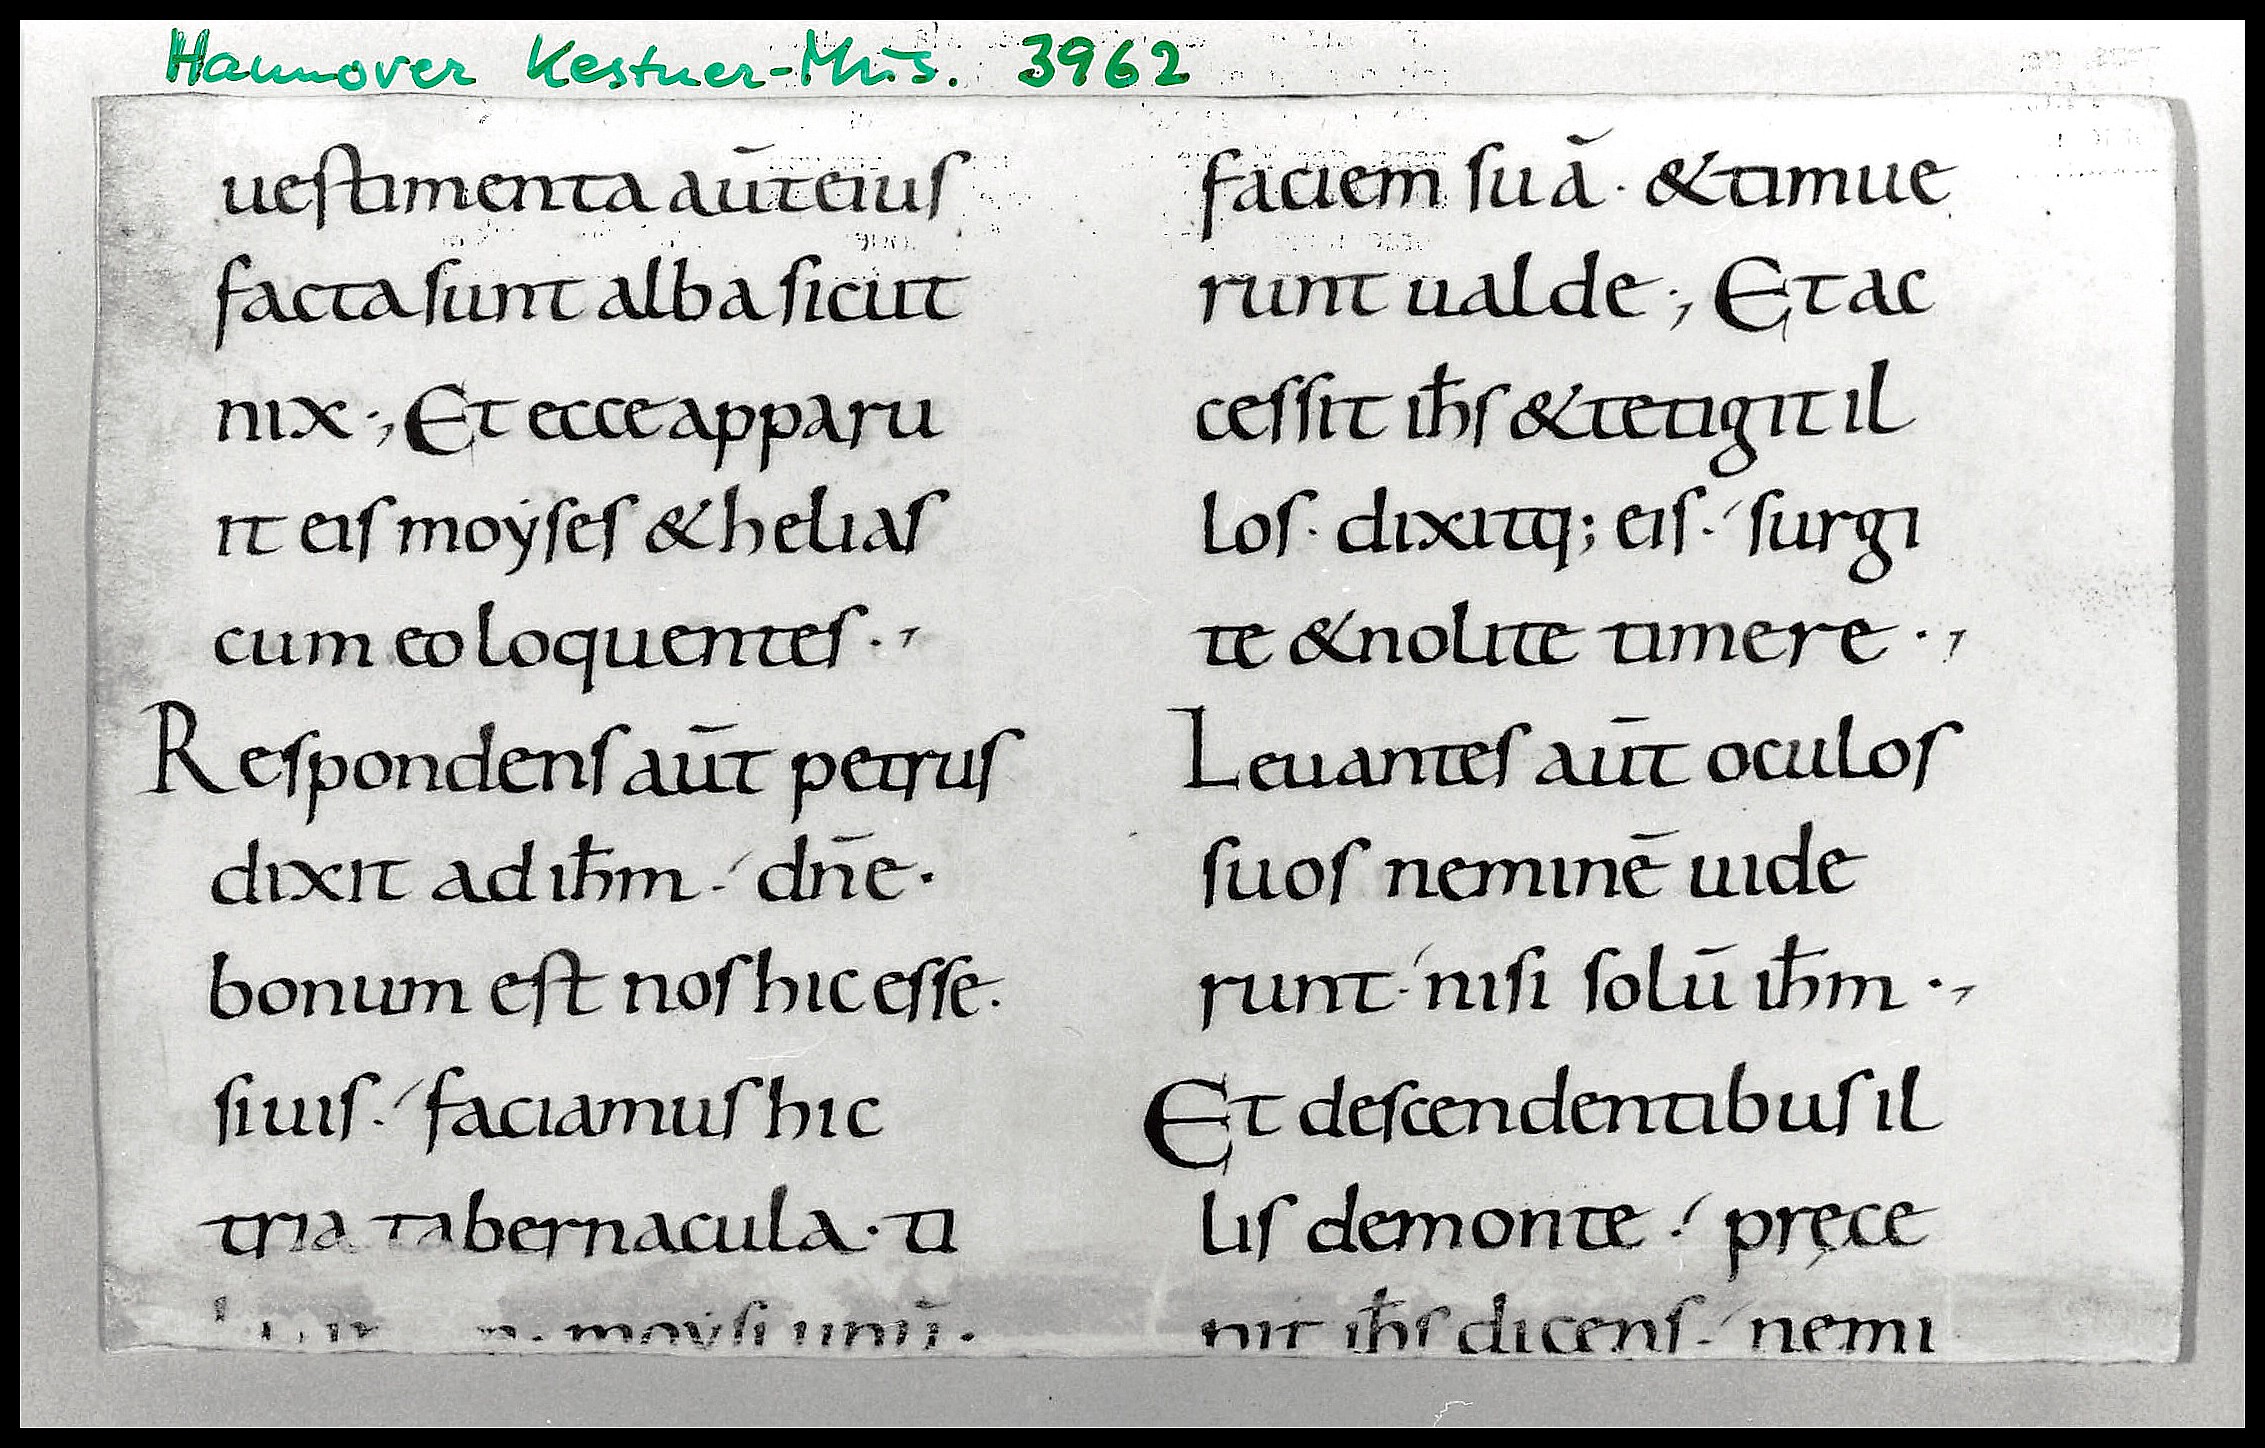 Hannover Kestner-Mus. 3962
uestimenta aūt eius
facta sunt alba sicut
nix ·, Et ecce apparu
it eis moẏses & helias
cum eo loquentes ·,
Respondens aūt petrus
dixit ad ih̄m ·' dn̄e ·
bonum est nos hic esse ·
si uis ·' faciamus hic
tria tabernacula · ti
moẏsi unū ·
faciem suā · & timue
runt ualde ·, Et ac
cessit ih̄s & tetigit il
los · dixitq; eis ·' surgi
te & nolite timere ·,
Leuantes aūt oculos
suos neminē uide
runt ·' nisi solū ih̄m ·,
Et descendentibus il
lis de monte ·' pręce
pit ih̄s dicens ·' nemi